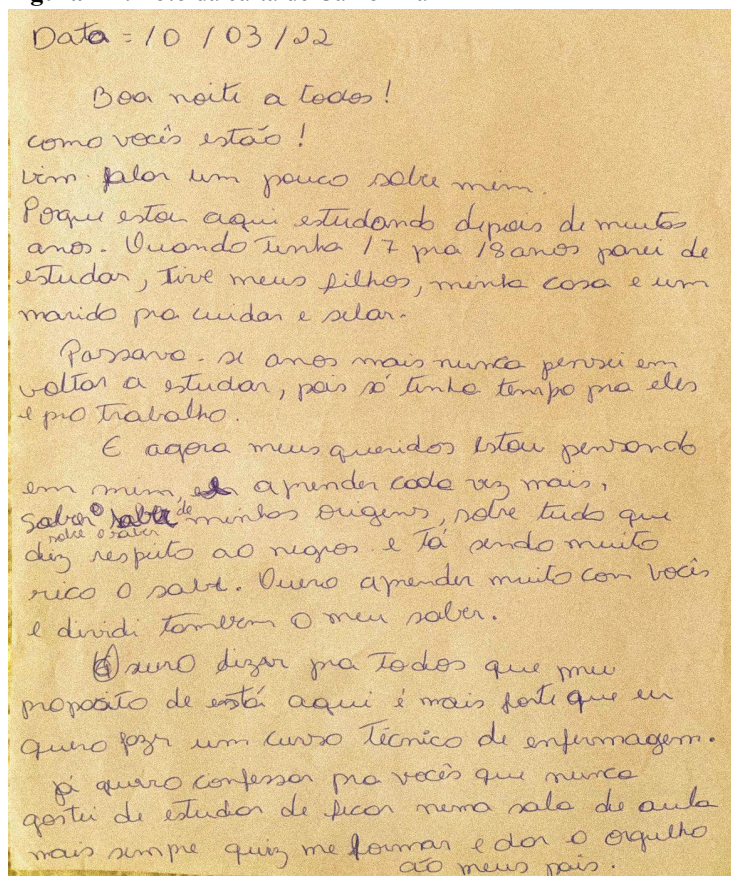 Data = 10 / 03 / 22
Boa noite a todos!
como vocês estão!
vim falar um pouco sobre mim.
Poque estou aqui estudando depois de muitos
anos. Quando tinha 17 pra 18 anos parei de
estudar, tive meus filhos, minha casa e um
marido pra cuidar e selar.
Passava-se anos mais nunca pensei em
voltar a estudar, pois só tinha tempo pra eles
e pro trabalho.
E agora meus queridos estou pensando
em mim, aprender cada vez mais,
saber de minhas origens, sobre tudo que
sobre o saber
diz respeito ao negros e tá sendo muito
rico o sabe. Quero aprender muito con vocês
e dividi também o meu saber.
Quero dizer pra todos que meu
proposito de está aqui é mais forte que eu
quero fazr um curso Técnico de enfermagem.
já quero confessar pra vocês que nunca
gostei de estudar de ficar nema sala de aula
mais sempre quiz me formar e dar o orgulho
ao meus pais.